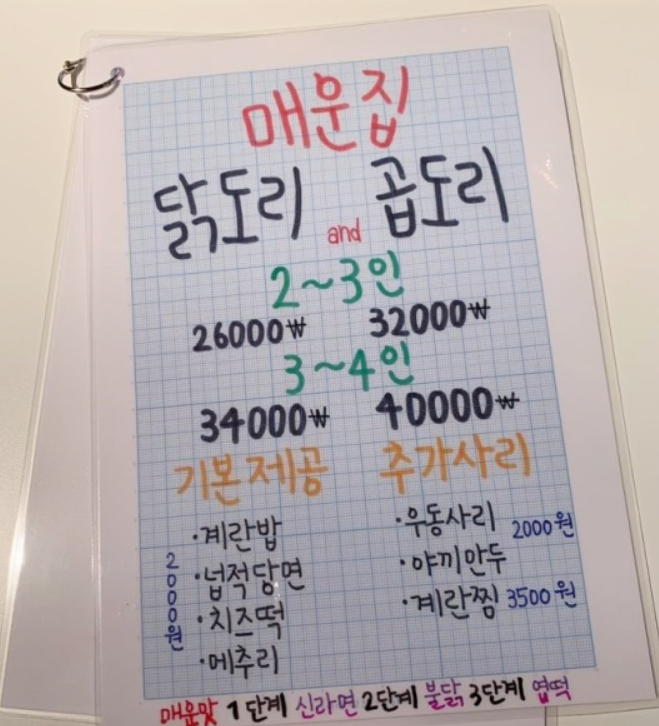 매운집
닭도리 and 곱도리
2~3인
26000₩ 32000₩
3~4인
34000₩ 40000₩
기본제공 추가사리
·계란밥 ·우동사리 2000원
·넙적당면 ·야끼만두
·치즈떡 ·계란찜 3500원
·메추리
2000원
매운맛 1단계 신라면 2단계 불닭 3단계 엽떡